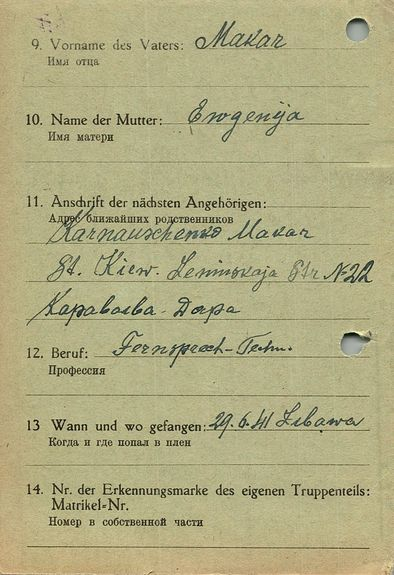 9. Vorname des Vaters: Makar
Имя отца
10. Name der Mutter: Ewgenija
Имя матери
11. Anschrift der nächsten Angehörigen:
Адрес ближайших родственников
Karnauschenko Makar
St. Kiew. Leninskaja Str №22
12. Beruf: Fernsprech-Techn.
Профессия
13 Wann und wo gefangen: 29.6.41 Libawa
Когда и где попал в плен
14. Nr. der Erkennungsmarke des eigenen Truppenteils:
Matrikel=Nr.
Номер в собственной части